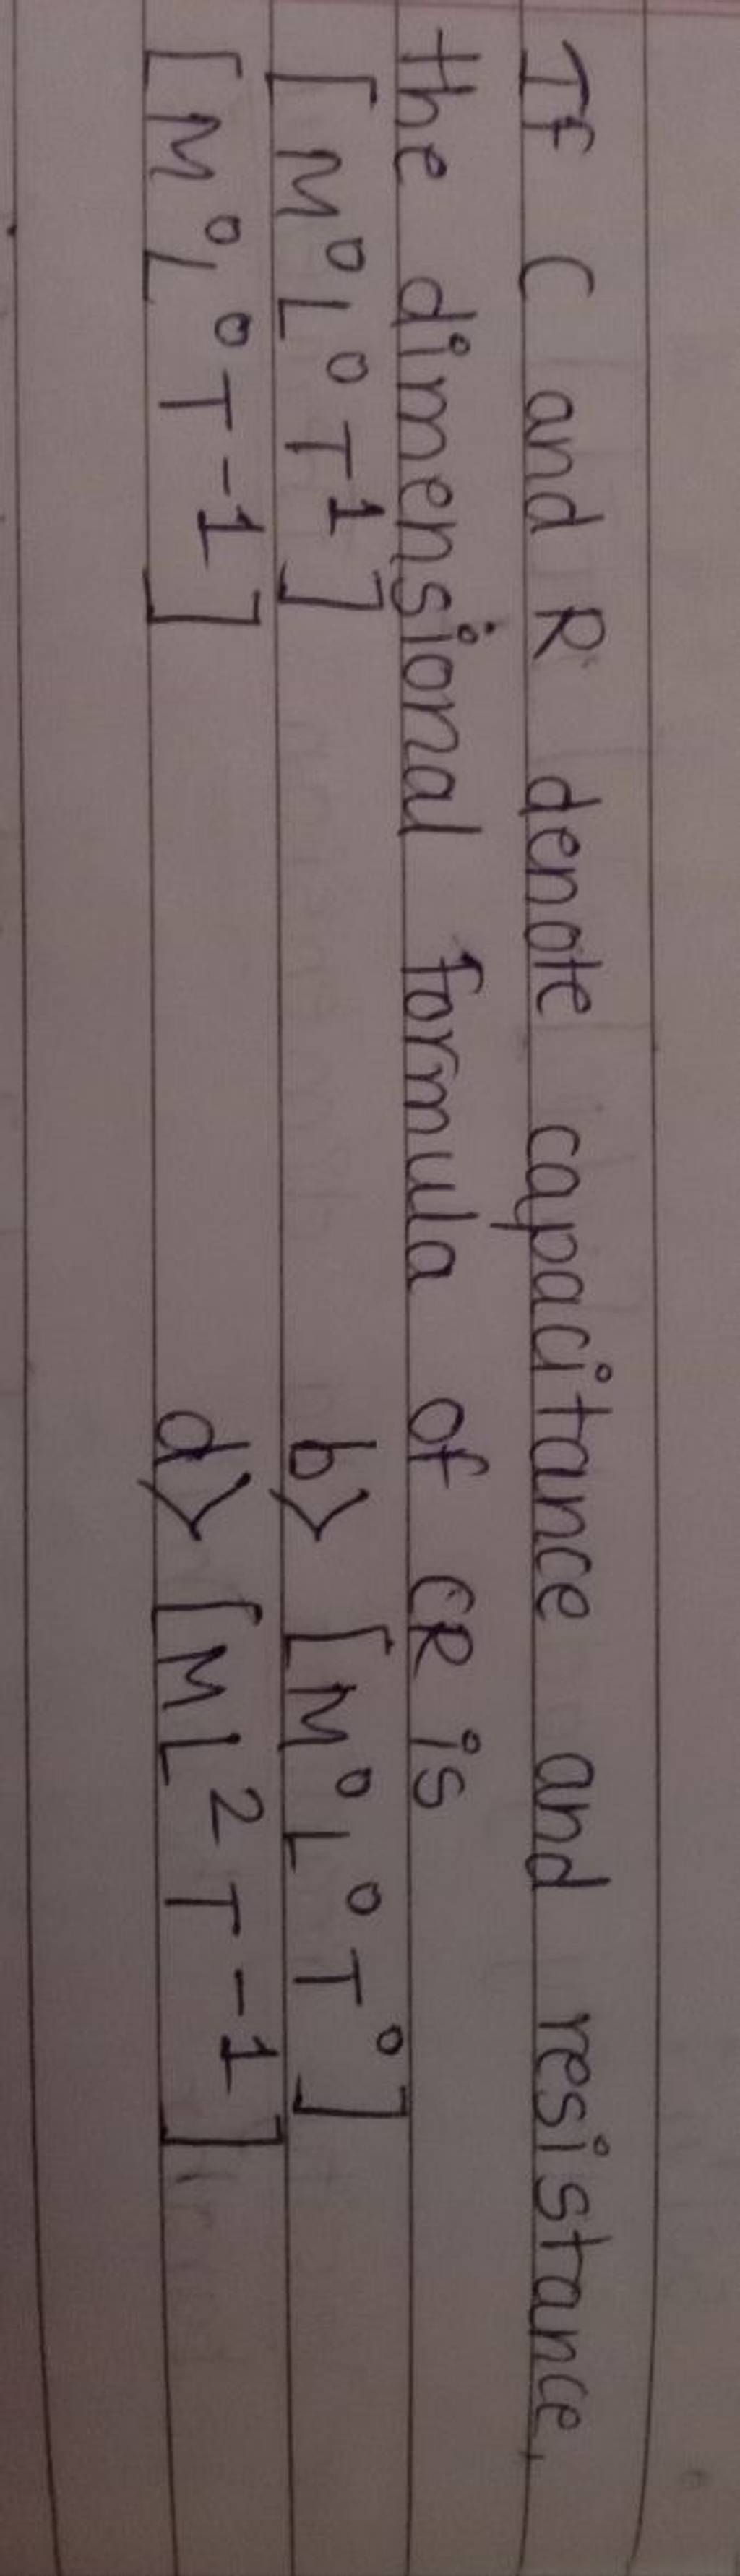 If C and R denote capacitance and resistance,
the dimensional formula of CR is
[M⁰L⁰T¹] b> [M⁰L⁰T⁰]
[M⁰L⁰T⁻¹] d> [ML²T⁻¹]